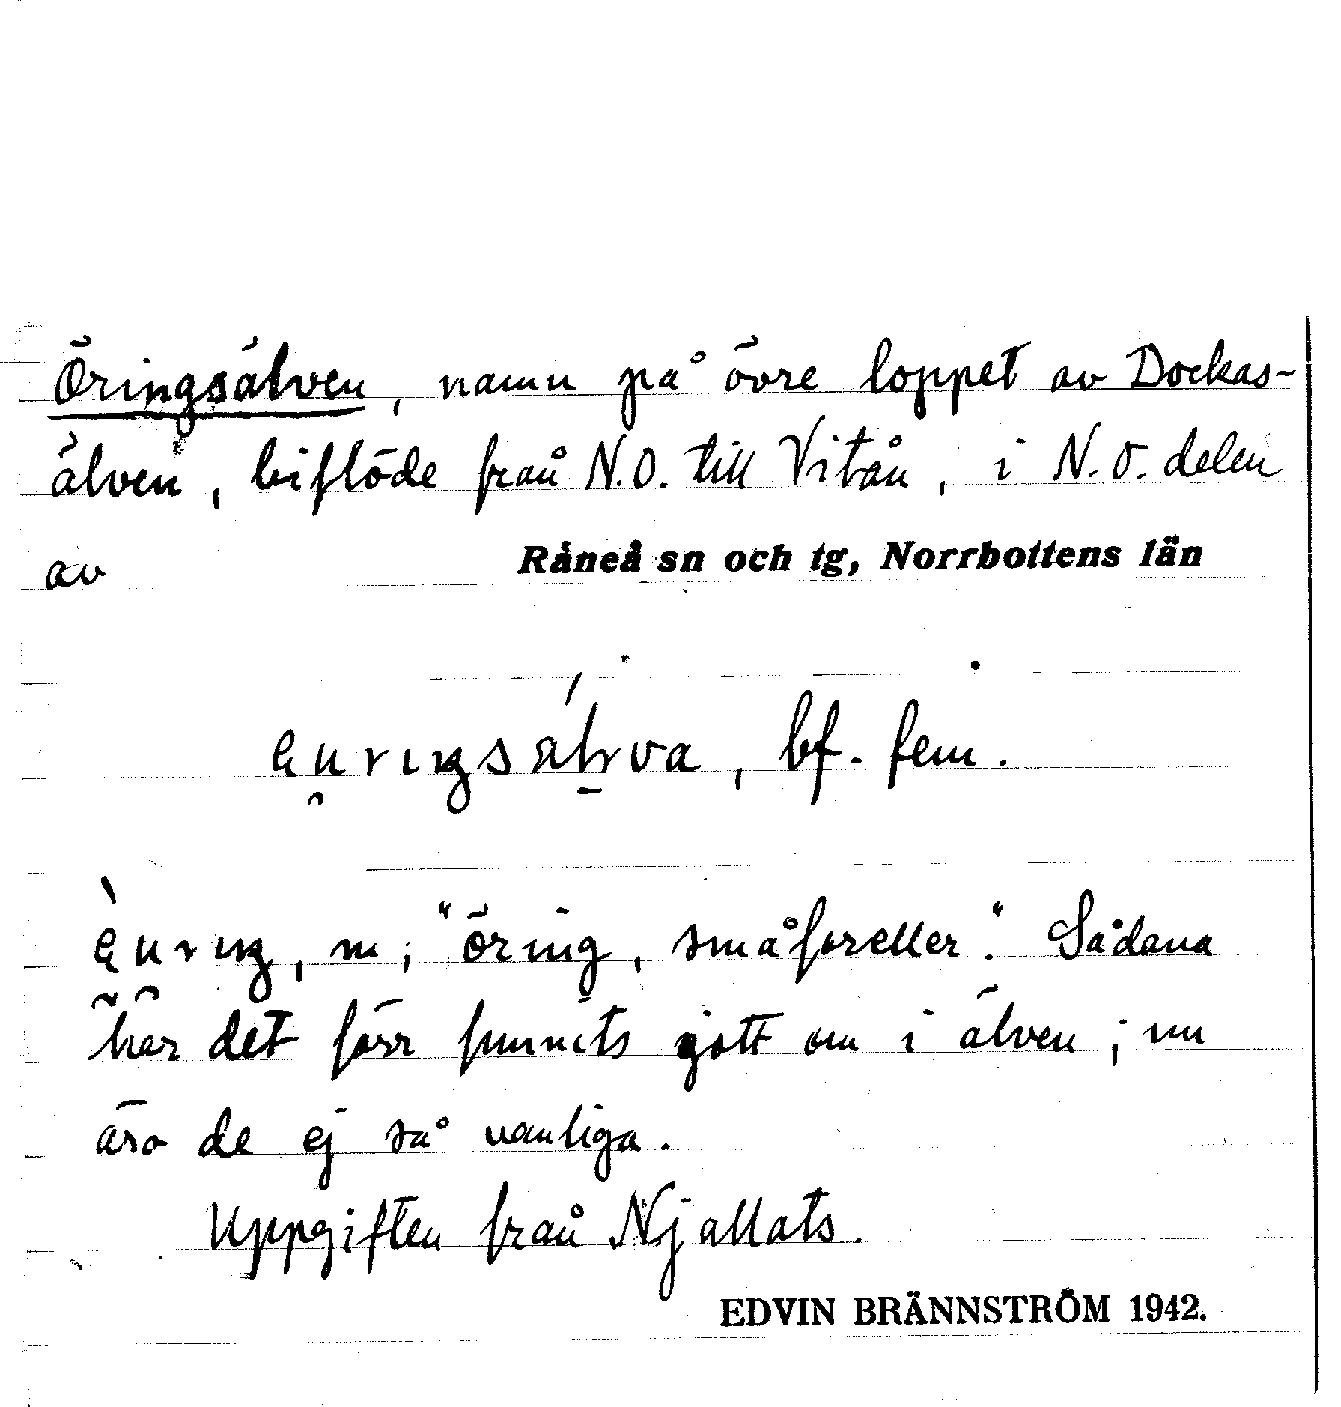 Öringsälven, namn på övre loppet av Dockas-
älven, biflöde från N.O. till Vitån, i N.O. delen
av Råneå sn och tg, Norrbottens län
, bf. fem.
m; "öring, småforeller". Sådana
har det förr funnits gott om i älven; nu
äro de ej så vanliga.
Uppgiften från Njallats.
EDVIN BRÄNNSTRÖM 1942.